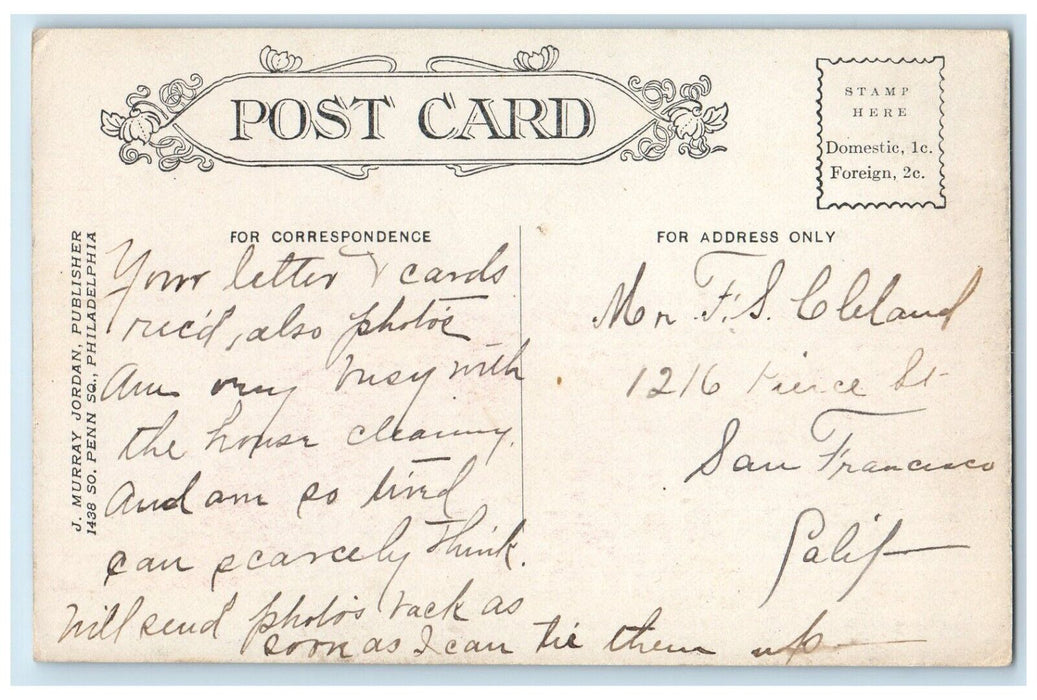 POST CARD
STAMP
HERE
Domestic, 1c.
Foreign, 2c.
J. MURRAY JORDAN, PUBLISHER
1438 SO. PENN SQ., PHILADELPHIA
FOR CORRESPONDENCE
Your letter & cards
rec'd, also photo's
Am very busy with
the house cleaning.
And am so tired
can scarcely think.
Will send photo's back as
soon as I can tie them up
FOR ADDRESS ONLY
Mr. F. S. Cleland
1216 Pierce St
San Francisco
Calif